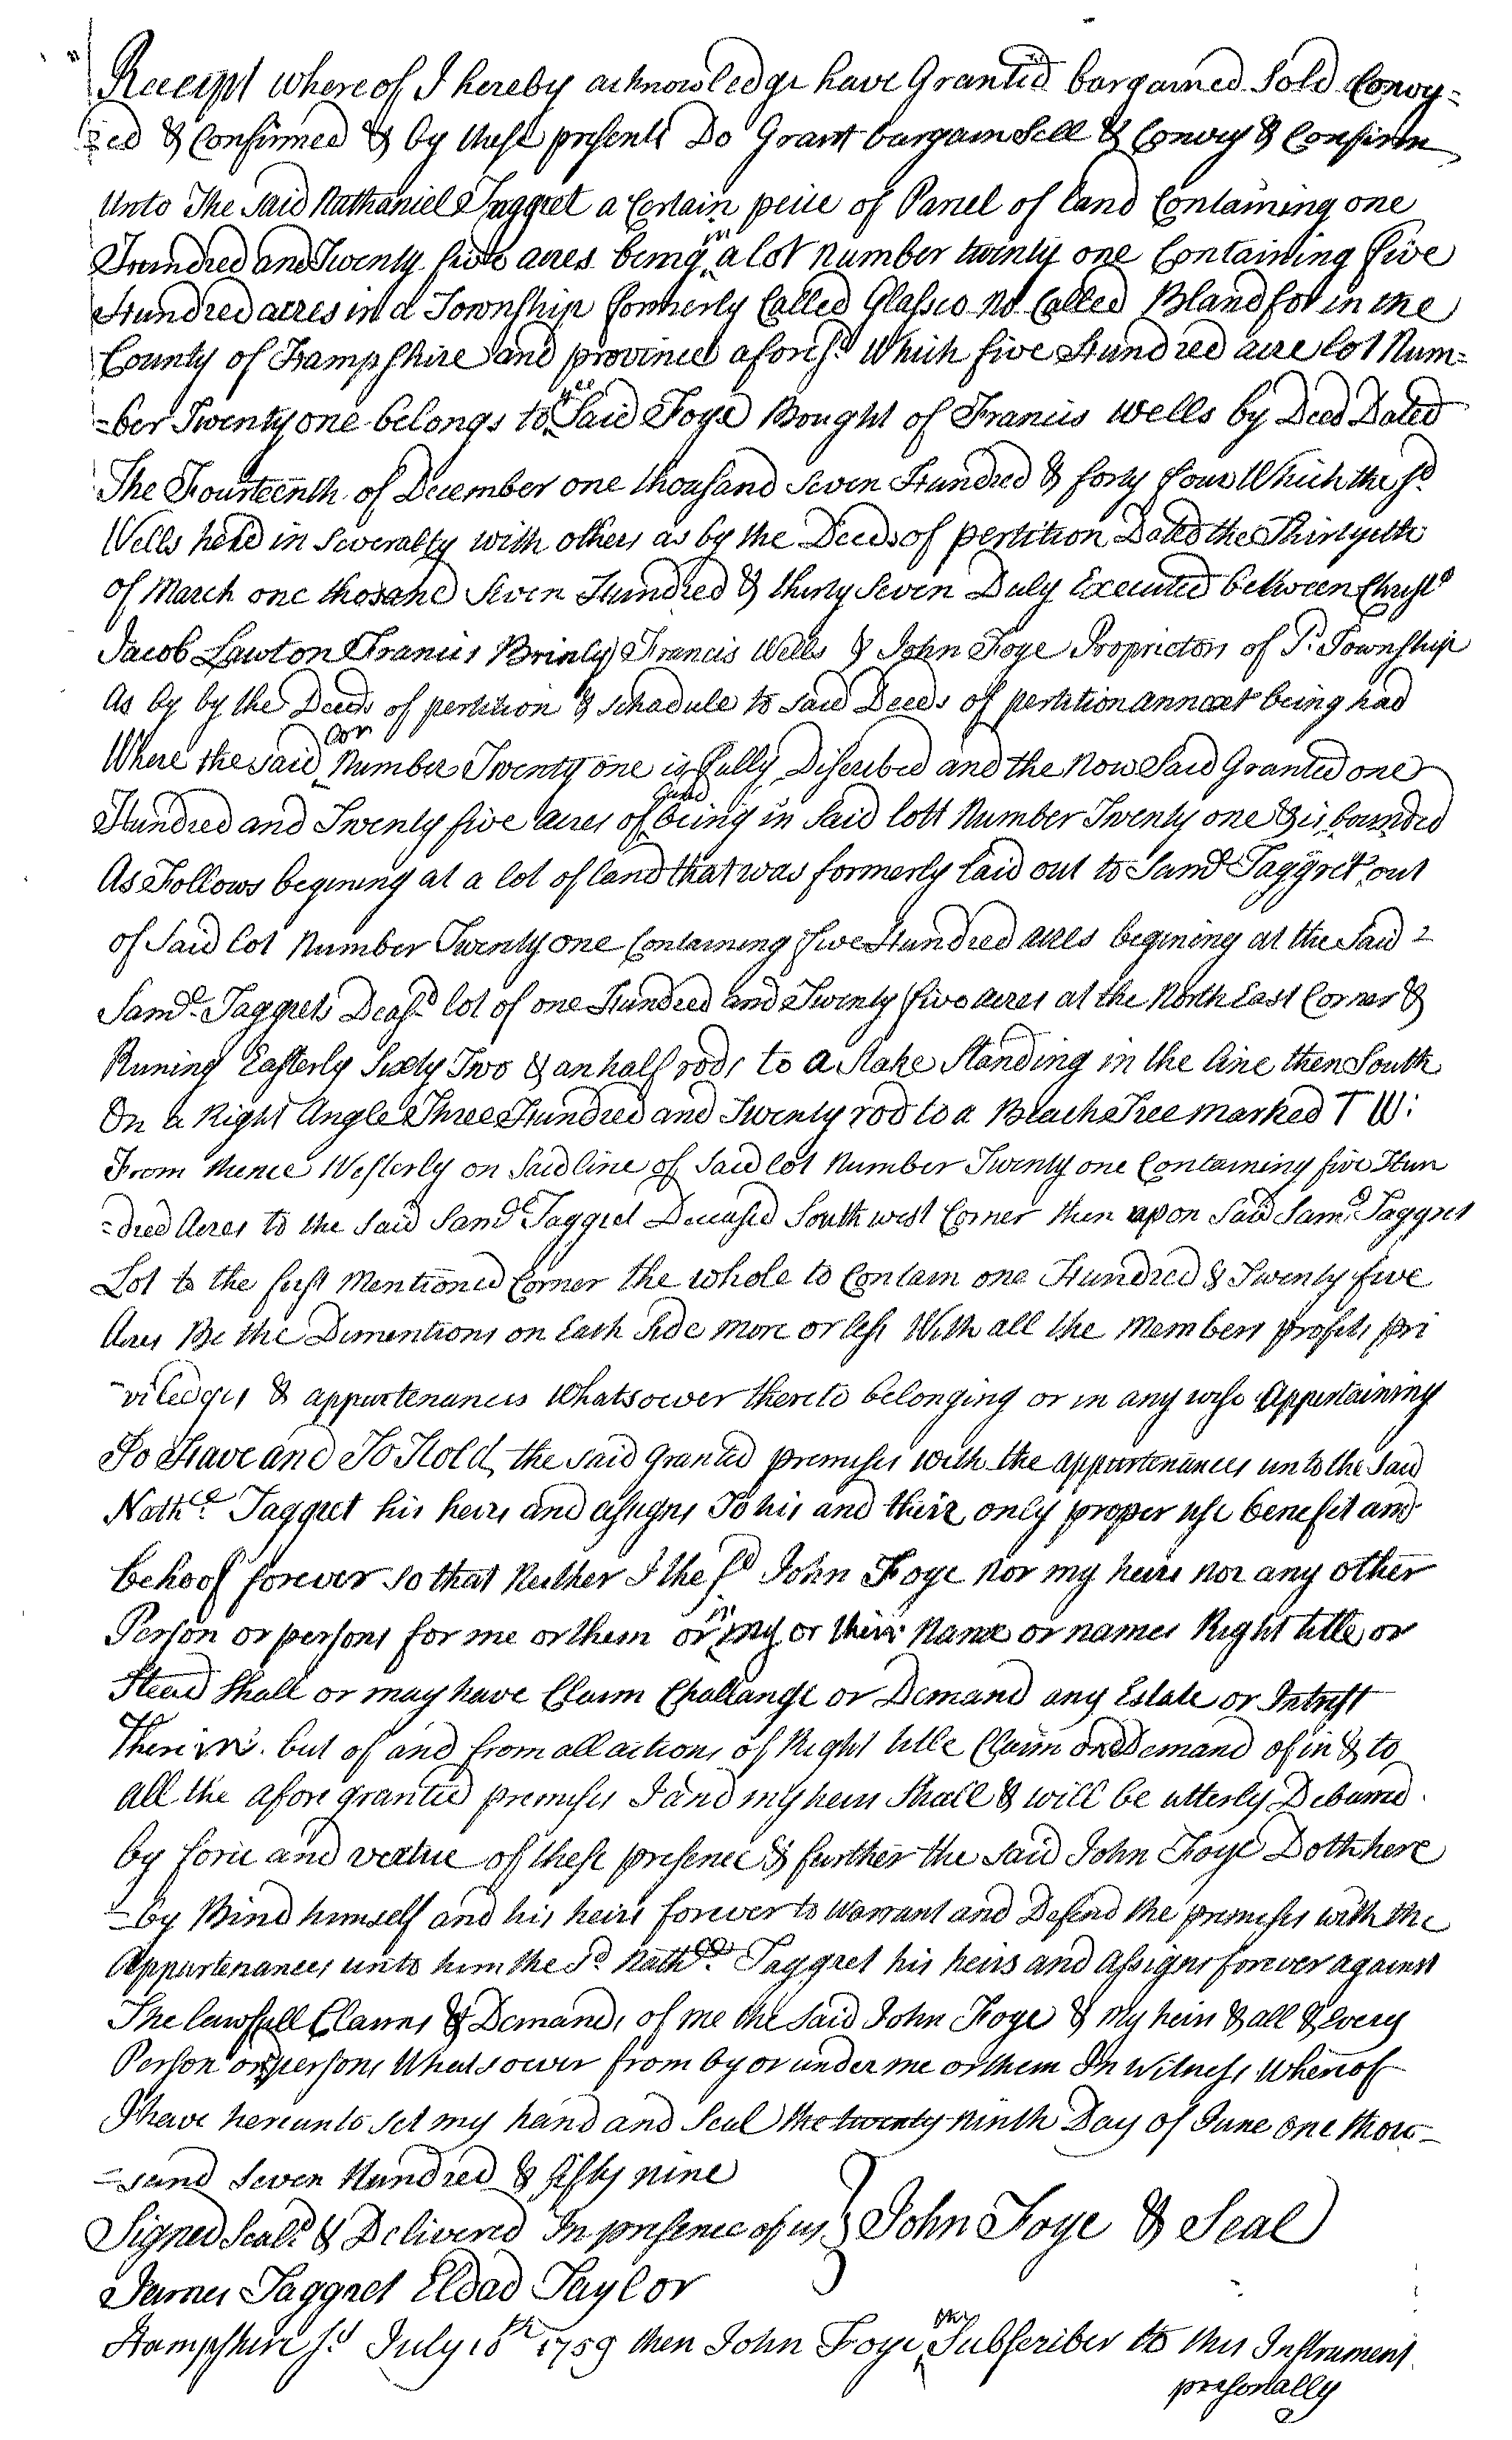 Receipt whereof I hereby acknowledge have Granted bargained Sold Convey=
=ed & Confirmed & by these presents Do Grant bargain Sell & Convey & Confirm
Unto The Said Nathaniel Taggret a Certain peice of Parcel of land Containing one
Hundred and Twenty five acres being in a lot number twinty one Containing five
Hundred acres in a Township formerly Called Glascο no Called Blandfor in the
County of Hampshire and province aforesd Which five Hundred acre lot Num=
=ber Twenty one belongs to ye Said Foye Bought of Francis Wells by Deed Dated
The Fourteenth of December one thousand Seven Hundred & forty four Which the sd
Wells held in Severalty with others as by the Deeds of pertition Dated the Thirtyeth
of March one thosand Seven Hundred & thirty Seven Duly Executed between Christr
Jacob Lawton Francis Brinly Francis Wells & John Foye Proprietors of Sd Township
As by by the Deeds of pertition & Schadule to Said Deeds of pertition annext being had
Where the said Lot Number Twenty one is fully Discribed and the now Said Granted one
Hundred and Twenty five acres of Land being in Said lott Number Twenty one & is bounded
As Follows begining at a lot of land that was formerly laid out to Samll Taggret out
of Said lot Number Twenty one Containing five Hundred acres begining at the Said
Samll Taggrets Deasd lot of one Hundred and Twenty five acres at the North East Corner &
Runing Easterly Sixty Two & an half rods to a Stake Standing in the line then South
On a Right Angle Three Hundred and Twenty rod to a Beach Tree marked T W:
From thence Westerly on Said line of Said lot Number Twenty one Containing five Hun
=dred Acres to the Said Samll Taggret Deceased South west Corner then upon Said Samll Taggret
Lot to the first Mentioned Corner the whole to Contain one Hundred & Twenty five
Acres Be the Dimentions on Each Side more or less With all the Members profits pri
-viledges & appurtenances Whatsoever thereto belonging or in any wise Appertaining
To Have and To Hold the Said Granted premises with the appurtenances unto the Said
Nathll Taggret his heirs and assigns To his and their only proper use benefit and
behoof forever So that Neither I the sd John Foye nor my heirs nor any other
Person or persons for me or them or in my or their Name or names Right title or
Stead Shall or may have Claim Challange or Demand any Estate or Intrest
Therein. but of and from all actions of Right title Claim or Demand of in & to
all the afore granted premises I and my heirs Shall & will be utterly Debarred
by force and vertue of these presence & further the Said John Foye Doth here
=by Bind himself and his heirs forever to Warrant and Defend the premises with the
Appurtenances unto him the Sd Nathll Taggret his heirs and Assigns forever against
The lawfull Claims & Demands of me the Said John Foye & my heirs & all & Every
Person or persons Whatsoever from by or under me or them In Witness Whereof
I have hereunto Set my hand and Seal the twenty ninth Day of June one thou=
=sand Seven Hundred & fifty nine
Signed Seald & Delivered In presence of us } John Foye & Seal
James Taggret Eldad Taylor
Hampshire Ss July 18th 1759 then John Foye the Subscriber to this Instrument
presonally